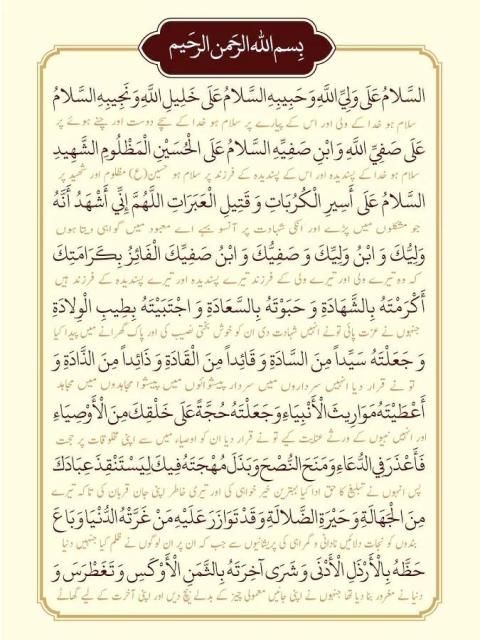 بِسمِ اللهِ الرَّحمنِ الرَّحیمِ
السَّلَامُ عَلَى وَلِيِّ اللَّهِ وَ حَبِيبِهِ السَّلَامُ عَلَى خَلِيلِ اللَّهِ وَ نَجِيبِهِ السَّلَامُ
سلام ہو خدا کے ولی اور اس کے پیارے پر سلام ہو خدا کے سچے دوست اور چنے ہوئے پر
عَلَى صَفِيِّ اللَّهِ وَ ابْنِ صَفِيِّهِ السَّلَامُ عَلَى الْحُسَيْنِ الْمَظْلُومِ الشَّهِيدِ
سلام ہو خدا کے پسندیدہ اور اس کے پسندیدہ کے فرزند پر سلام ہو حسین(ع) مظلوم اور شہید پر
السَّلَامُ عَلَى أَسِيرِ الْكُرُبَاتِ وَ قَتِيلِ الْعَبَرَاتِ اللَّهُمَّ إِنِّي أَشْهَدُ أَنَّهُ
جو مشکلوں میں پڑے اور انکی شہادت پر آنسو بہے اے معبود میں گواہی دیتا ہوں
وَلِيُّكَ وَ ابْنُ وَلِيِّكَ وَ صَفِيُّكَ وَ ابْنُ صَفِيِّكَ الْفَائِزُ بِكَرَامَتِكَ
کہ وہ تیرے ولی اور تیرے ولی کے فرزند تیرے پسندیدہ اور تیرے پسندیدہ کے فرزند ہیں
أَكْرَمْتَهُ بِالشَّهَادَةِ وَ حَبَوْتَهُ بِالسَّعَادَةِ وَ اجْتَبَيْتَهُ بِطِيبِ الْوِلَادَةِ
جنہوں نے عزت پائی تونے انہیں شہادت دی ان کو خوش بختی نصیب کی اور پاک گھرانے میں پیدا کیا
وَ جَعَلْتَهُ سَيِّداً مِنَ السَّادَةِ وَ قَائِداً مِنَ الْقَادَةِ وَ ذَائِداً مِنَ الذَّادَةِ وَ
تو نے قرار دیا انہیں سرداروں میں سردار پیشواؤں میں پیشوا مجاہدوں میں مجاہد
أَعْطَيْتَهُ مَوَارِيثَ الْأَنْبِيَاءِ وَ جَعَلْتَهُ حُجَّةً عَلَى خَلْقِكَ مِنَ الْأَوْصِيَاءِ
اور انہیں نبیوں کے ورثے عنایت کیے تو نے قرار دیا ان کو اوصیاء میں سے اپنی مخلوقات پر حجت
فَأَعْذَرَ فِي الدُّعَاءِ وَ مَنَحَ النُّصْحَ وَ بَذَلَ مُهْجَتَهُ فِيكَ لِيَسْتَنْقِذَ عِبَادَكَ
پس انہوں نے تبلیغ کا حق ادا کیا بہترین خیر خواہی کی اور تیری خاطر اپنی جان قربان کی تاکہ تیرے
مِنَ الْجَهَالَةِ وَ حَيْرَةِ الضَّلَالَةِ وَ قَدْ تَوَازَرَ عَلَيْهِ مَنْ غَرَّتْهُ الدُّنْيَا وَ بَاعَ
بندوں کو نجات دلائیں نادانی و گمراہی کی پریشانیوں سے جب کہ ان پر ان لوگوں نے ظلم کیا جنہیں دنیا
حَظَّهُ بِالْأَرْذَلِ الْأَدْنَى وَ شَرَى آخِرَتَهُ بِالثَّمَنِ الْأَوْكَسِ وَ تَغَطْرَسَ وَ
دنیا نے مغرور بنا دیا تھا جنہوں نے اپنی جانیں معمولی چیز کے بدلے بیچ دیں اور اپنی آخرت کے لیے گھاٹے